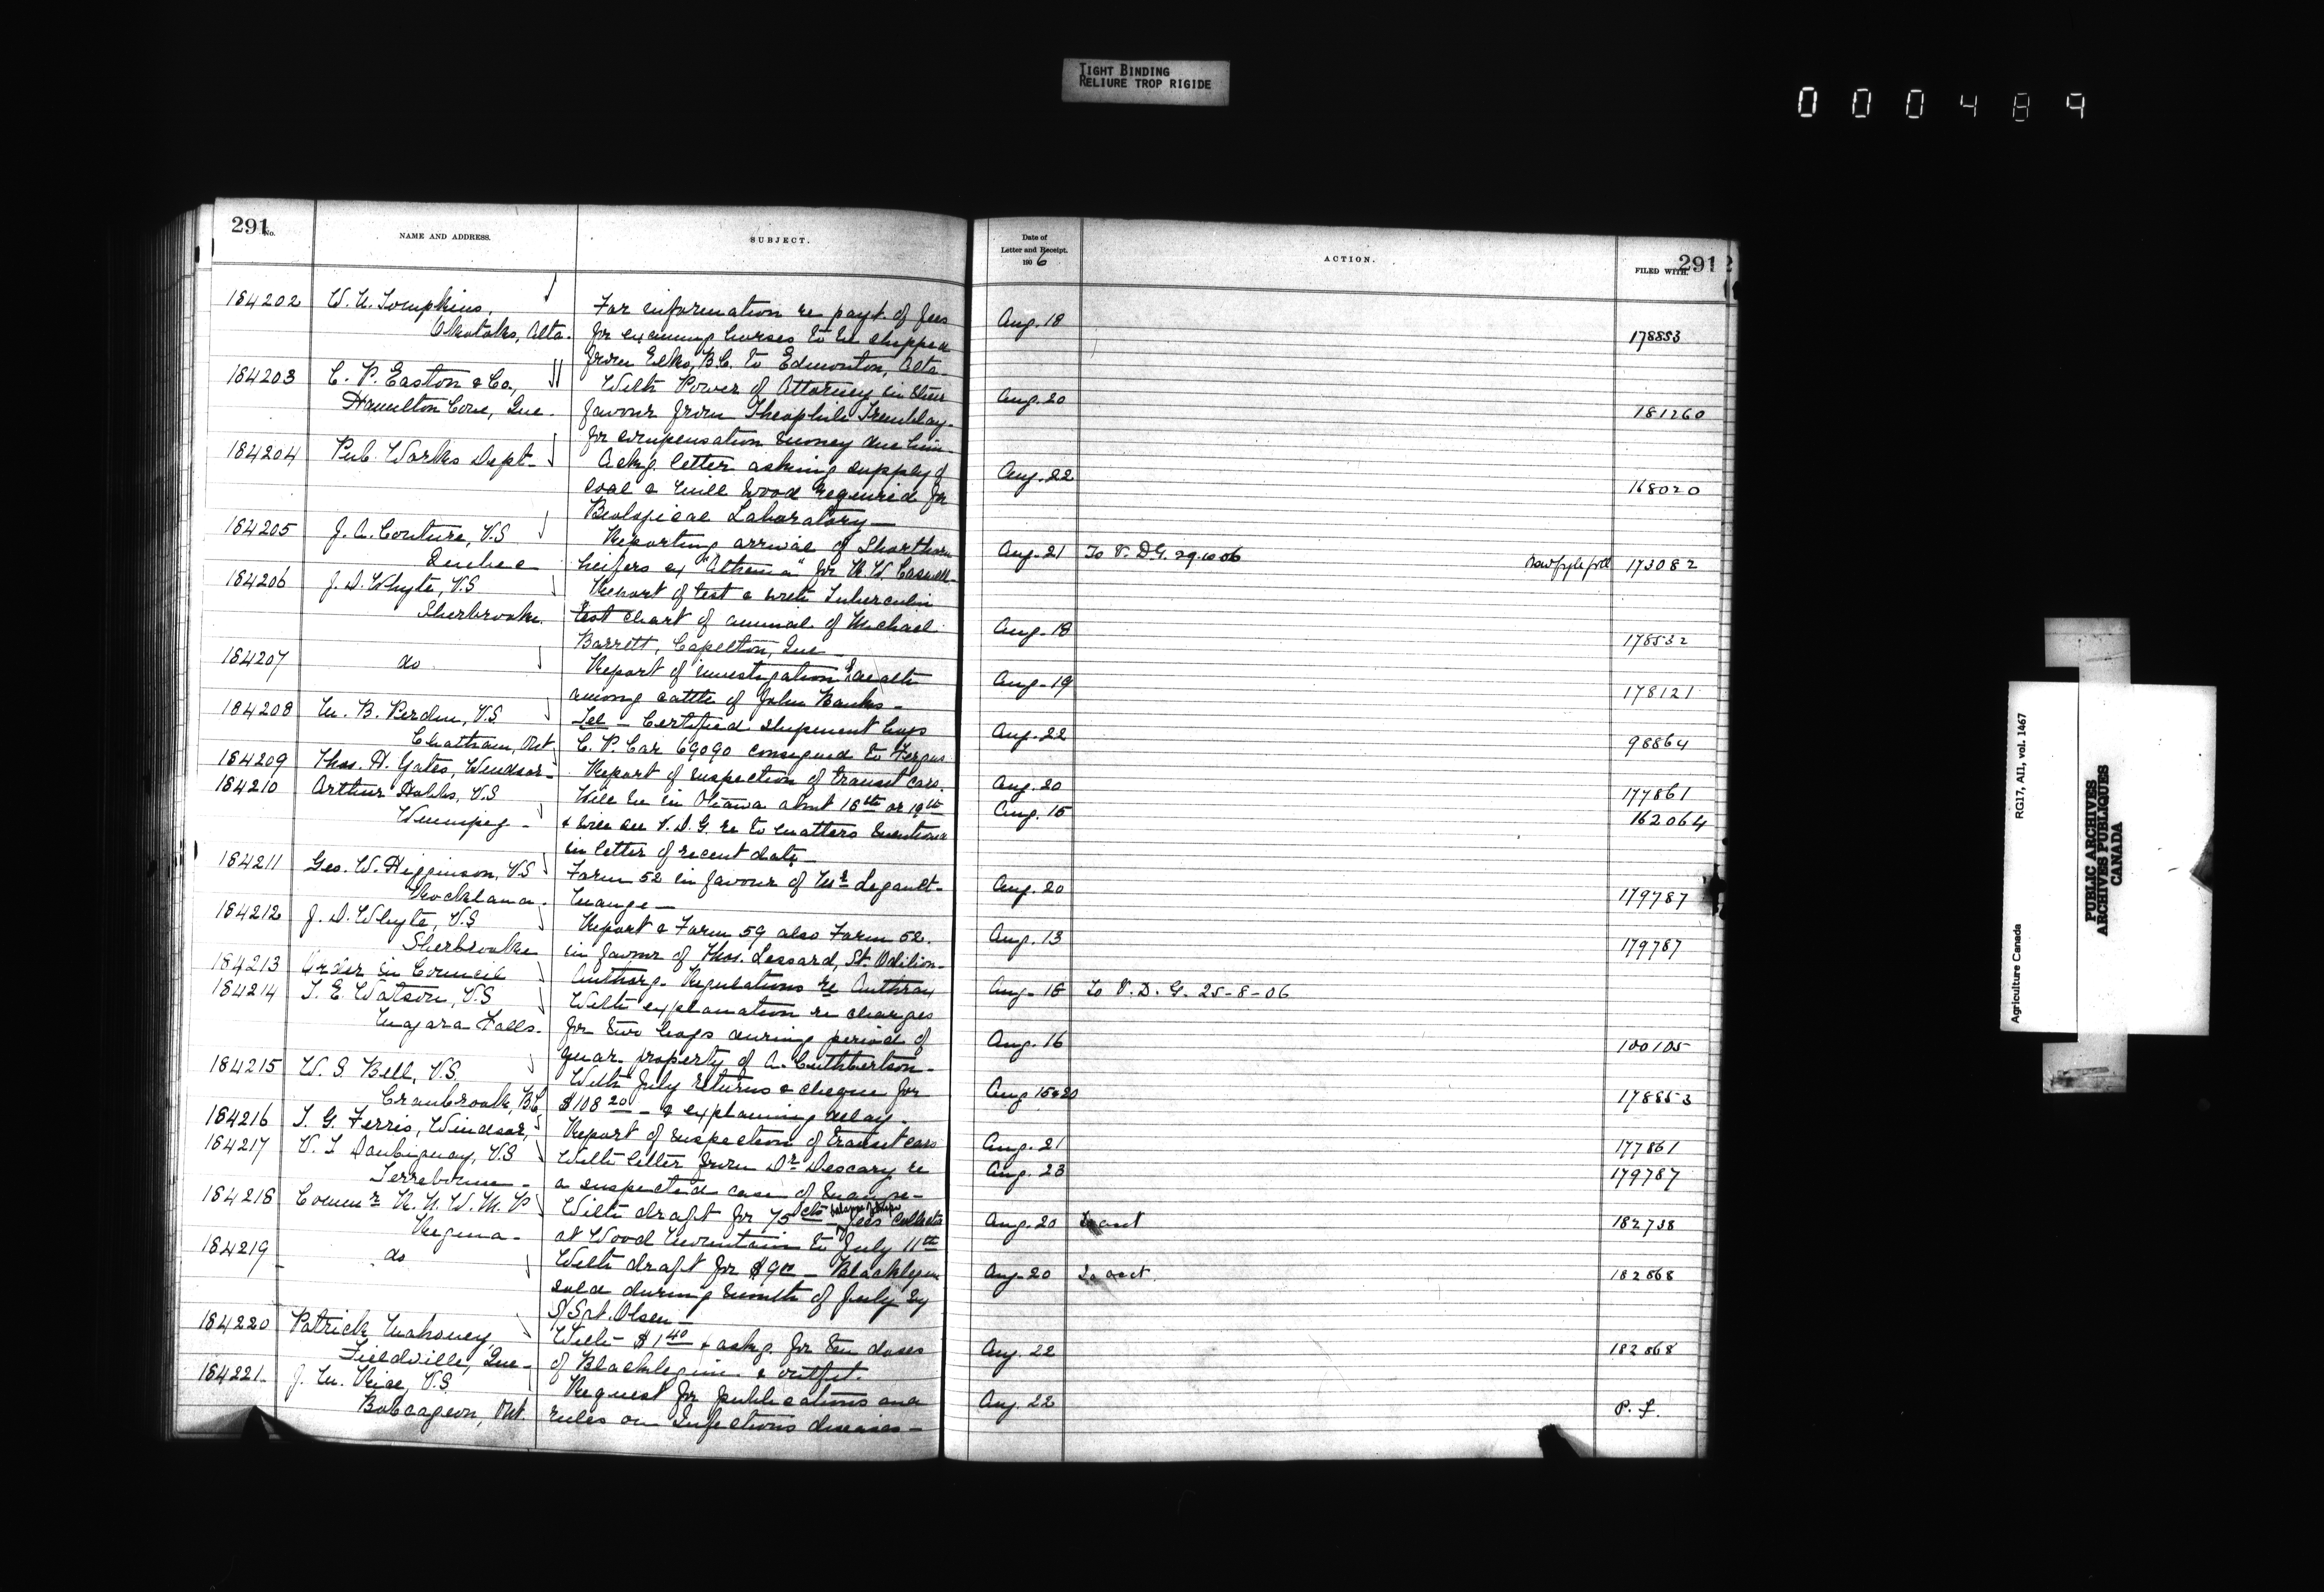 TIGHT BINDING
RELIURE TROP RIGIDE
000489
291
No.
NAME AND ADDRESS.
SUBJECT.
Date of
Letter and Receipt.
1906
ACTION.
FILED WITH.
291
184202 W. H. Tompkins, For information re payt. of fees Aug. 18
Okotoks, Alta. for examing horses to be shipped 178853
from Elko, B.C. to Edmonton, Alta
184203 C. P. Easton & Co., With Power of Attorney in their Aug. 20
Hamilton Cove, Que. favour from Theophile Tremblay 181260
for compensation money due him
184204 Pub. Works Dept. Ackg. letter asking supply of Aug. 22
coal & mill wood required for 168020
Biological Laboratory
184205 J. A. Couture, V.S Reporting arrival of Shorthorn Aug. 21 To V. D.G. 29.10.06
Quebec heifers ex "Athenia" for R. W. Caswell 173082
184206 J. D. Whyte, V.S Report of test & with Tuberculin
Sherbrooke. test chart of animal of Michael Aug. 18
Barrett, Capelton, Que 178532
184207 do Report of investigation
among cattle of John Banks Aug. 19 178121
184208 M. B. Perdue, V.S Tel - Certified shipment hogs Aug. 22
Chatham, Ont C. P. Car 69090 consigned to Fergus 98864
184209 Thos. H. Gates, Windsor Report of inspection of transit cars. Aug. 20 177861
184210 Arthur Hobbs, V.S Will be in Ottawa about 18th or 19th Aug. 15 162064
Winnipeg & will see V. D. G. re to matters mentioned
in letter of recent date
184211 Geo. W. Higginson, V.S Form 52 in favour of Mr Legault Aug. 20
Rockland. Mange 179787
184212 J. D. Whyte, V.S Report & Form 59 also Form 52. Aug. 13
Sherbrooke in favour of Thos. Lessard, St. Odilon 179787
184213 Order in Council Authorg. Regulations re Anthrax Aug. 18 To V. D. G. 25-8-06
184214 T. E. Watson, V.S With explanation re charges
Niagara Falls. for two hogs during period of Aug. 16 100105
quar. property of A. Cuthbertson
184215 W. S. Bell, V.S. With July returns & cheque for Aug 15 & 20
Cranbrook, B.C. $108 20 - & explaining delay 178853
184216 T. G. Ferris, Windsor, Report of inspection of transit cars Aug. 21 177861
184217 V. T. Daubigny, V.S With letter from Dr Descary re Aug. 23 179787
Terrebonne a suspected case of mange
184218 Commr R. N. W. M. P With draft for 75 cts - fees collected Aug. 20 To acct 182738
Regina at Wood Mountain to July 11th
184219 do With draft for $9 00 - Blacklegine Aug. 20 To acct. 182868
sold during month of July by
S/Sgt. Olsen
184220 Patrick Mahoney With $1 40 & askg. for ten doses Aug. 22 182868
Fieldville, Que of Blacklegine & outfit.
184221 J. M. Rice, V.S Request for publications and Aug. 22 P. f.
Bobcageon, Ont. rules on Infectious diseases
Agriculture Canada RG17, AII, vol. 1467
PUBLIC ARCHIVES
ARCHIVES PUBLIQUES
CANADA